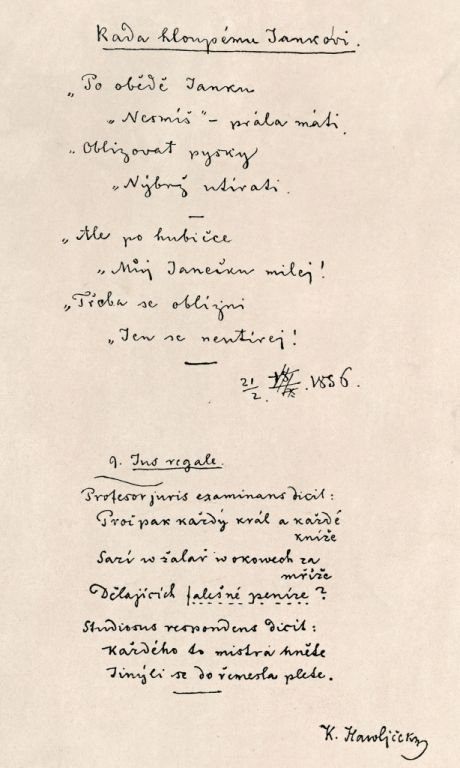 Rada hloupému Jankovi.
„Po obědě Janku
„Nesmíš" – prála máti.
„Oblizovat pysky
„Nýbrž utírati.
„Ale po hubičce
„Můj Janečku milej!
„Třeba se oblízni
„Jen se neutírej!
21/2. 1856.
9. Jus regale.
Profesor juris examinans dicit:
Proč pak každý král a každé
kníže
Sází w žalář w okowech za
mříže
Dělajících falešné peníze?
Studiosus respondens dicit:
Každého to mistra hněte
Jinýli se do řemesla plete.
K. Hawljček